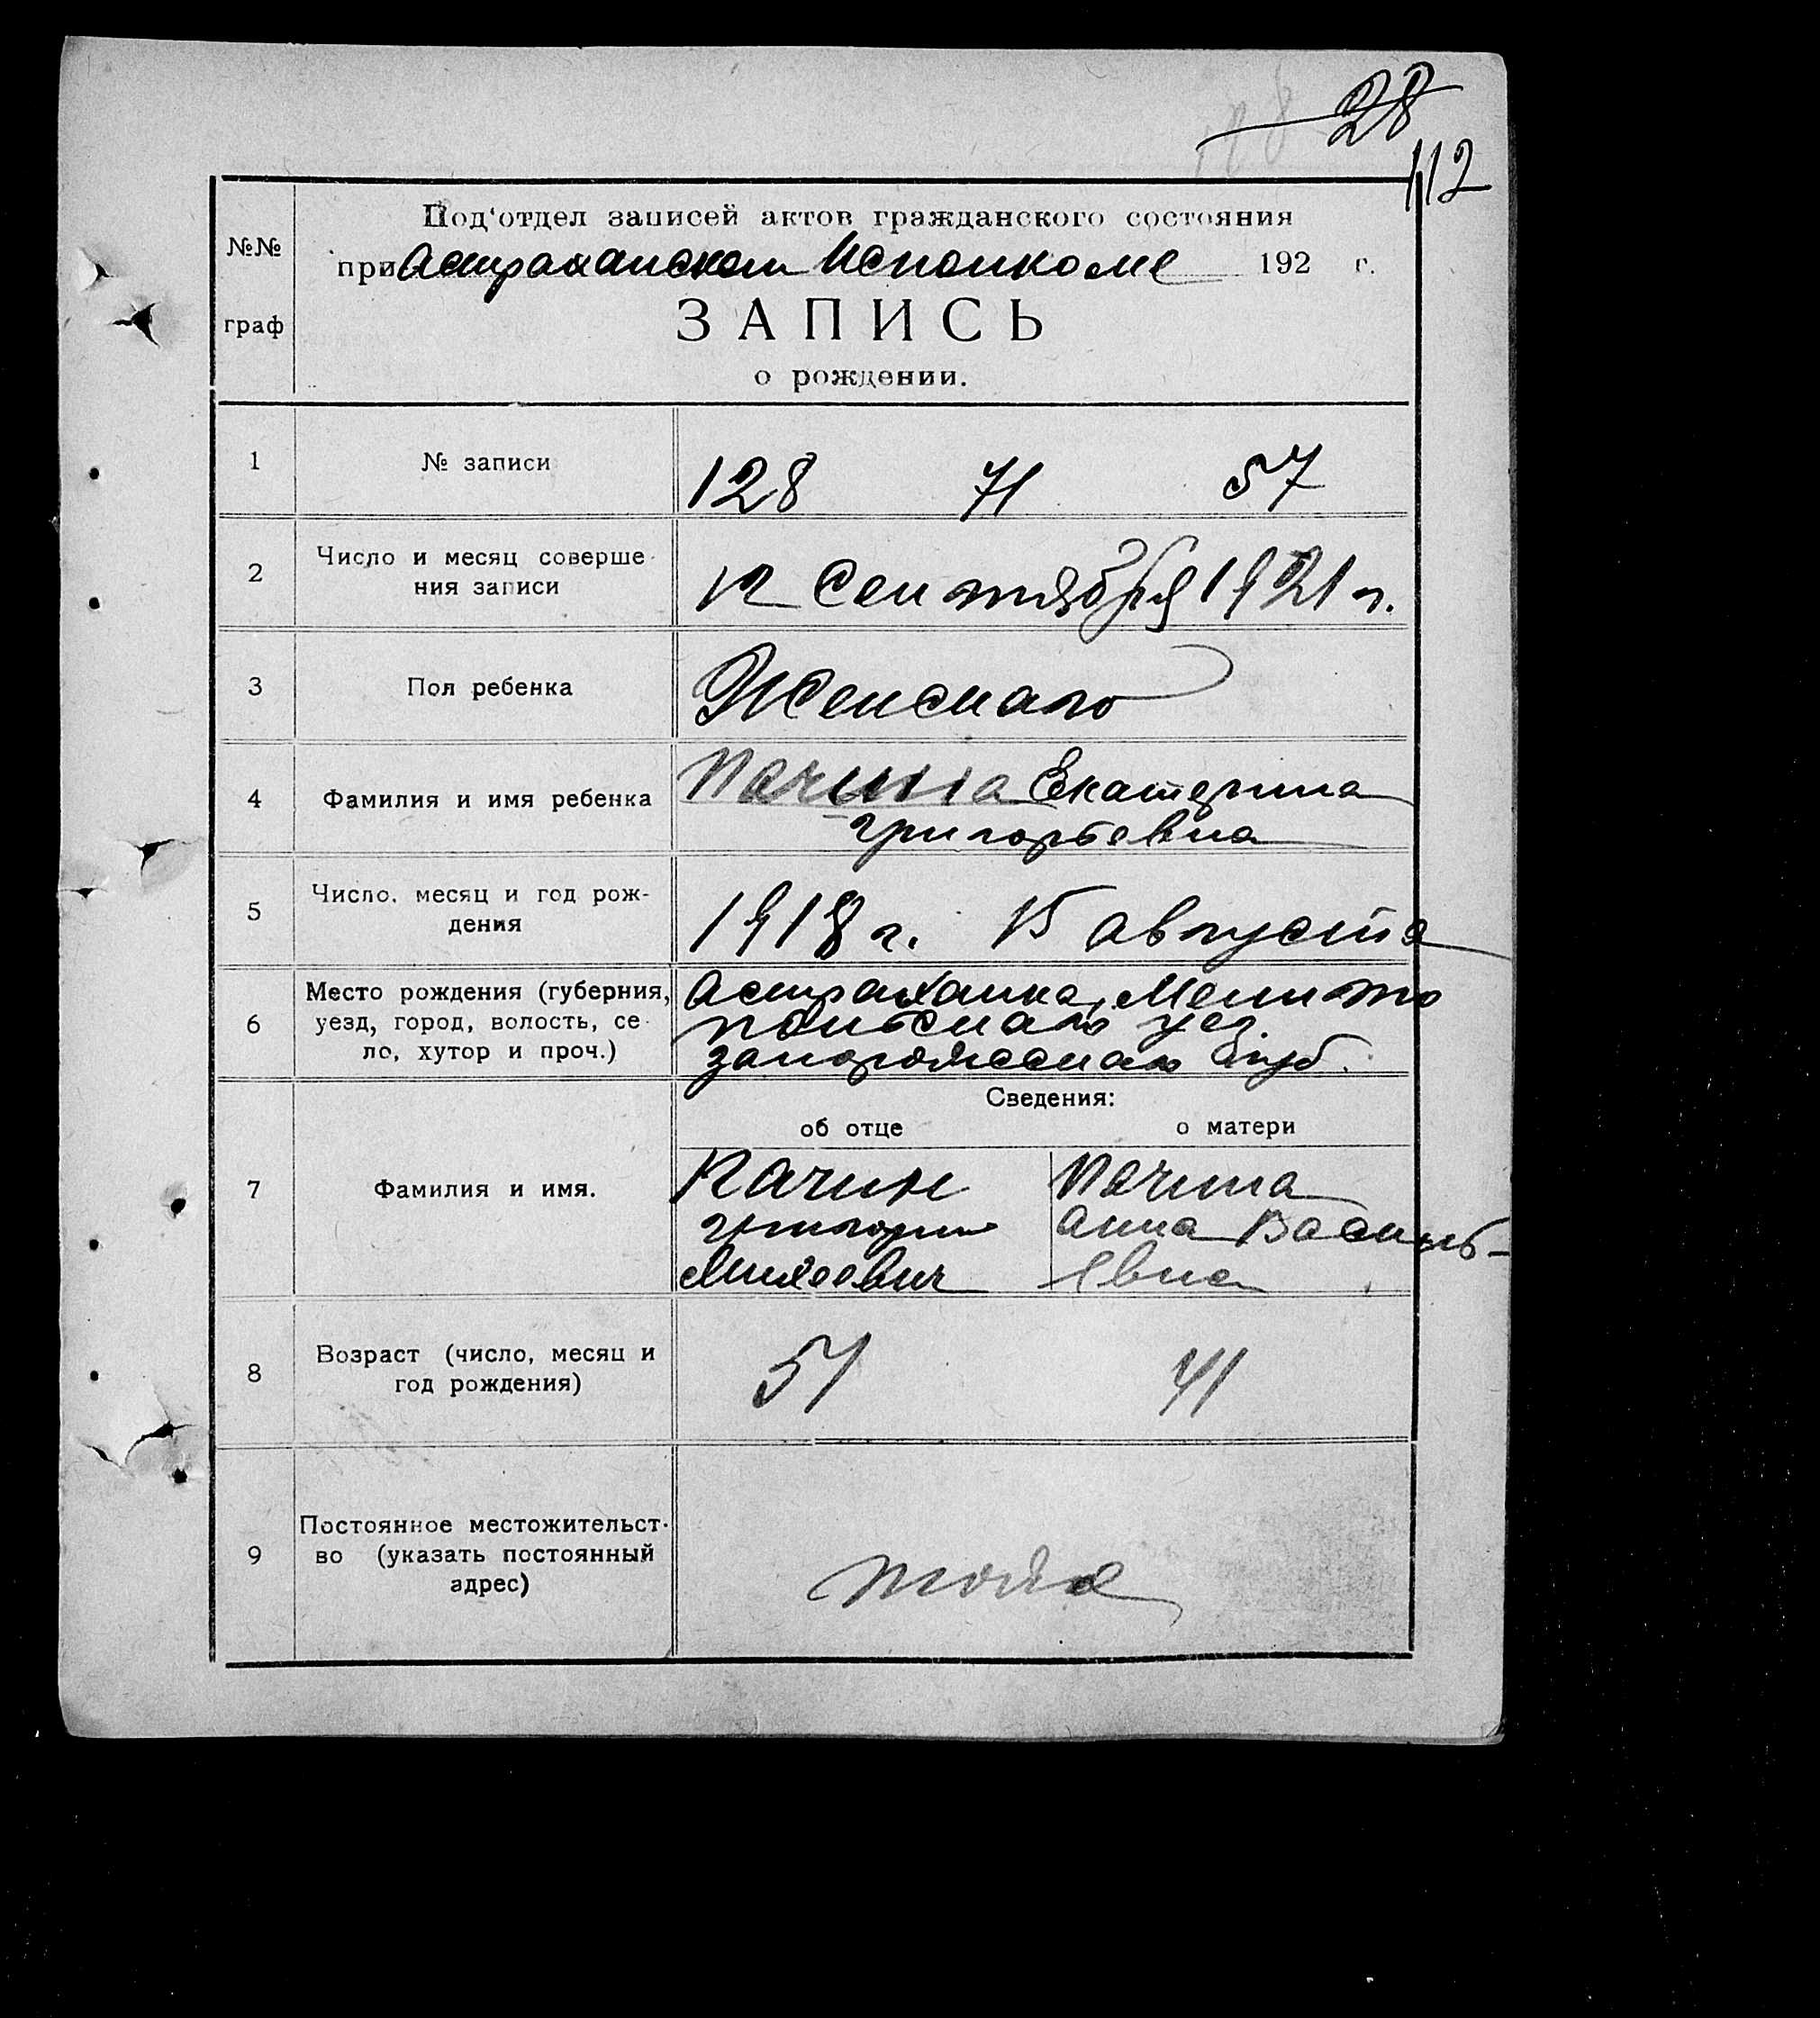 28
112
Под‘отдел записей актов гражданского состояния
№№
при Астраханском Исполкоме 192 г.
граф
ЗАПИСЬ
о рождении.
1 № записи 128 71 57
2 Число и месяц соверше-
ния записи
12 Сентября 1921 г.
3 Пол ребенка Женскаго
4 Фамилия и имя ребенка
Пачина Екатерина
Григорьевна
5 Число, месяц и год рож-
дения
1918 г. 15 августа
6 Место рождения (губерния,
уезд, город, волость, се-
ло, хутор и проч.)
Астраханка, Мелито
польскаго уез.
запорожскаго губ.
Сведения:
об отце о матери
7 Фамилия и имя.
Пачин Пачина
Григорий Анна Василь-
Михеевич евна
8 Возраст (число, месяц и
год рождения)
51 41
9 Постоянное местожительст-
во (указать постоянный
адрес)
тоже